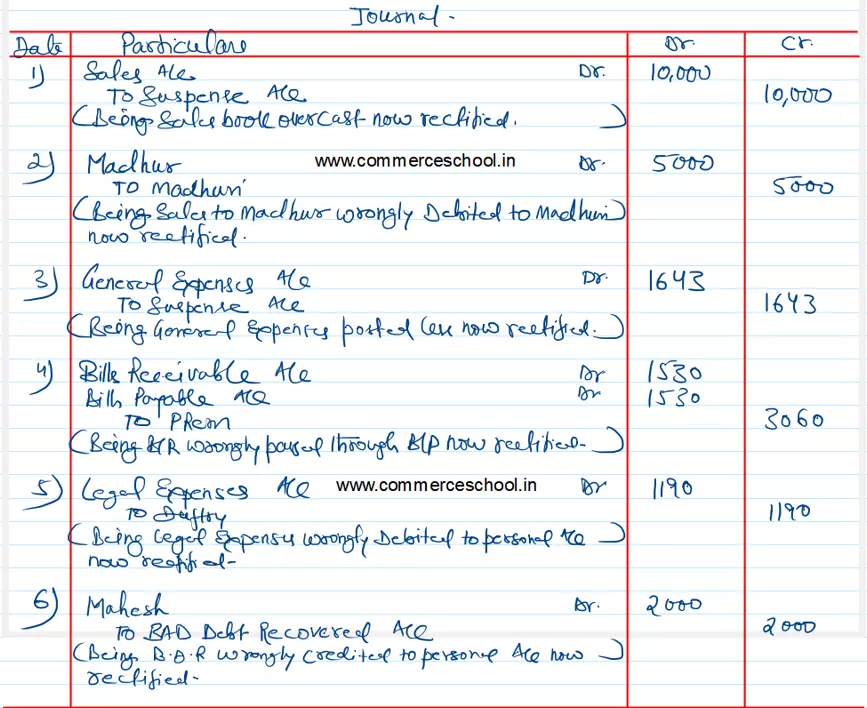 Journal -
Date Particulars Dr. Cr.
1) Sales A/c Dr. 10,000
To Suspense A/c 10,000
(Being Sales book overcast now rectified.)
2) Madhur www.commerceschool.in Dr. 5000
To Madhuri 5000
(Being Sales to Madhur wrongly Debited to Madhuri)
now rectified.
3) General Expenses A/c Dr. 1643
To Suspense A/c 1643
(Being General Expenses posted less now rectified.)
4) Bills Receivable A/c Dr 1530
Bills Payable A/c Dr 1530
To Prem 3060
(Being B/R wrongly passed through B/P now rectified-)
5) Legal Expenses A/c www.commerceschool.in Dr 1190
To Duftry 1190
(Being Legal Expenses wrongly Debited to personal A/c)
now rectified-
6) Mahesh Dr. 2000
To BAD Debt Recovered A/c 2000
(Being B.D.R wrongly credited to personal A/c now)
rectified-